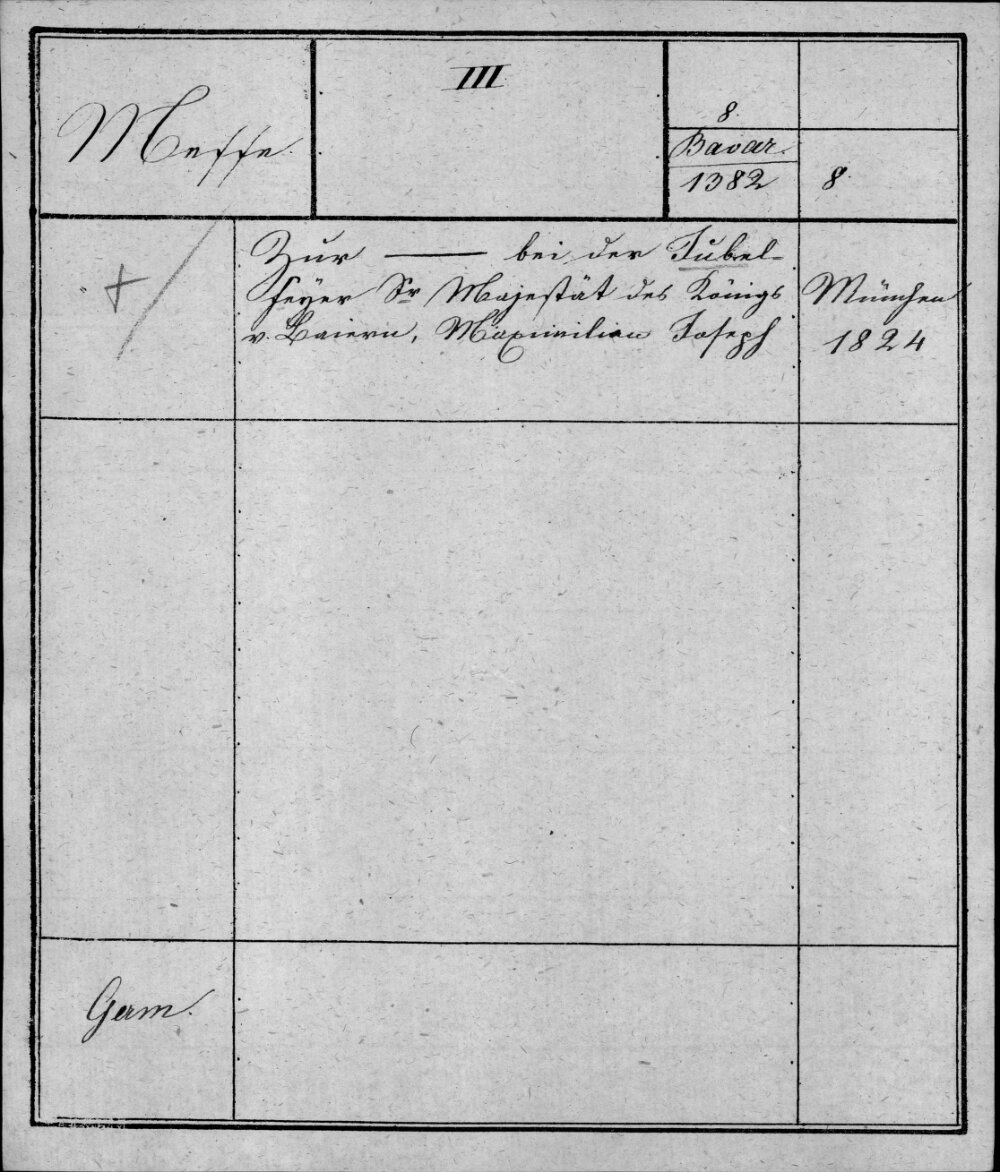 Messe.
III
8.
Bavar.
1382
8.
Zur —— bei der Jubel-
feyer Sr Majestät des Königs
v. Baiern, Maximilian Joseph
München
1824
Germ.